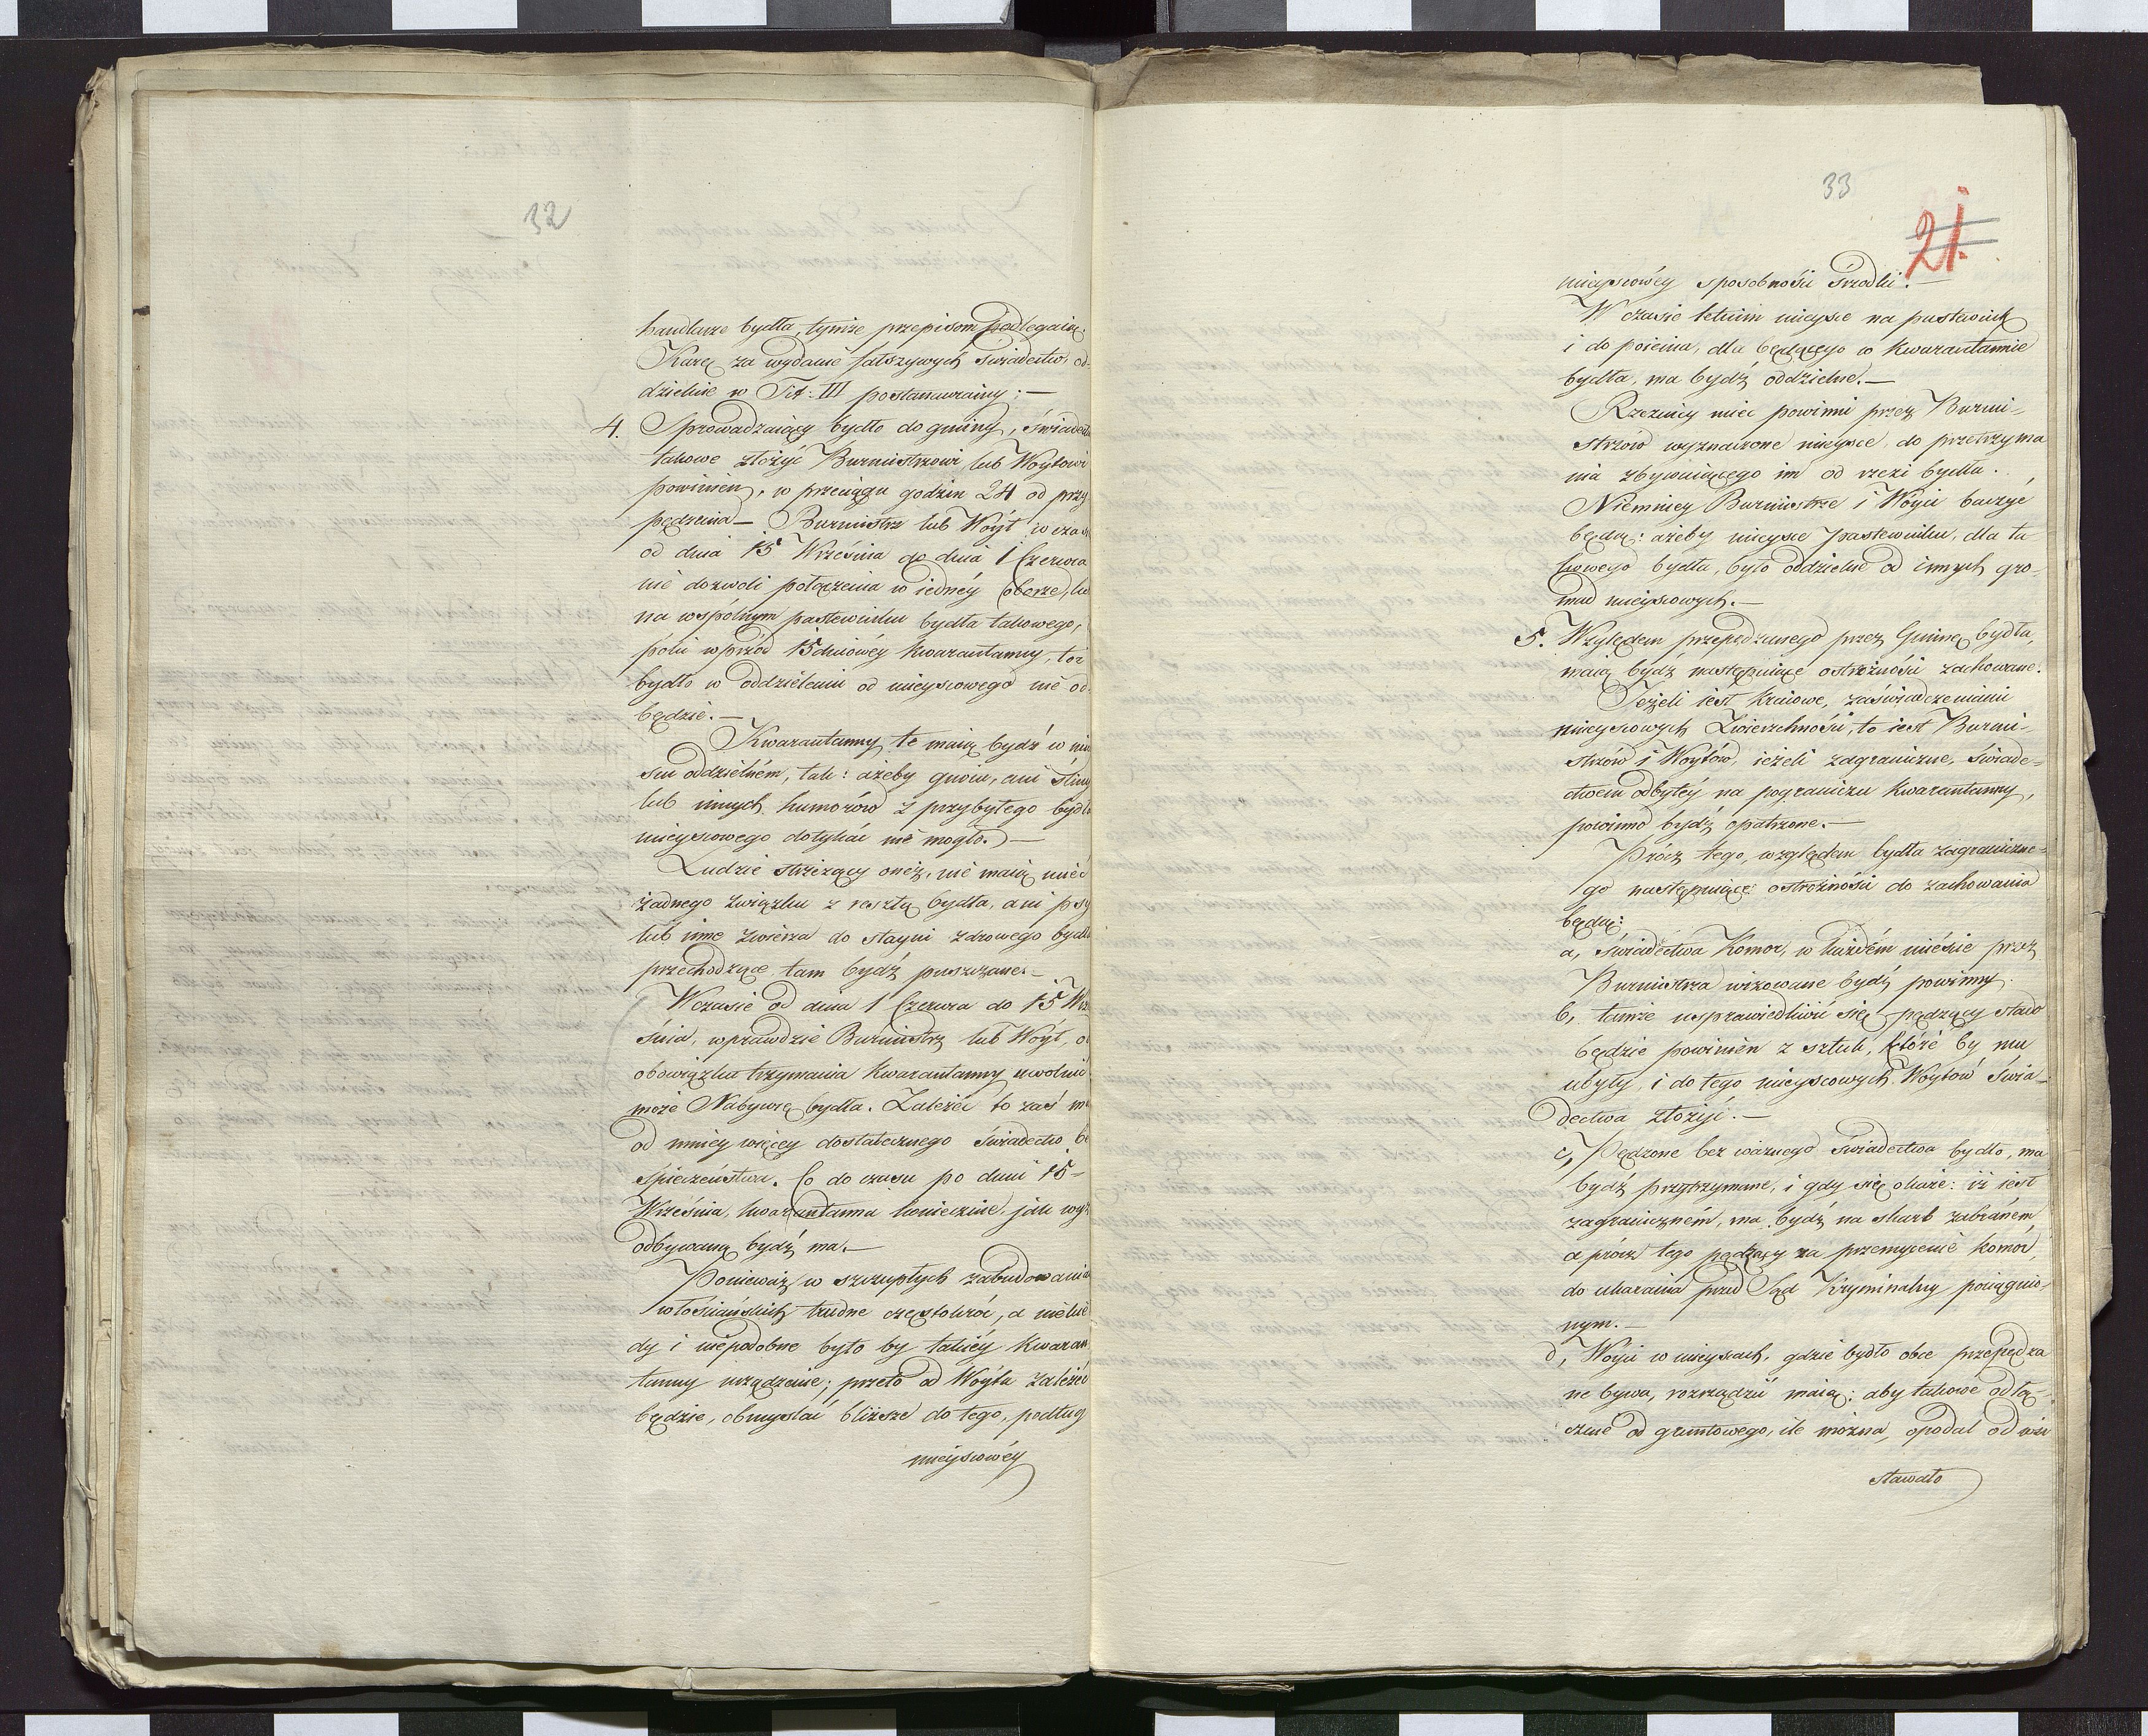 32
handlarze bydła, tymże przepisom podlegaią.
Karę za wydanie fałszywych świadectw od-
dzielnie w Tit: III postanawiamy; —
4. Sprowadzaiący bydło do gminy, świadect
takowe złożyć Burmistrzowi lub Woytowi
powinien, w przeciągu godzin 24 od przy
pędzenia — Burmistrz lub Woyt w czasie
od dnia 15 Września do dnia 1 Czerwca
nie dozwoli połączenia w iednéy Oborze, lub
na wspólnym pastewniku bydła takowego,
póki wprzód 15 dniówéy Kwarantanny, toż
bydło w oddzieleniu od mieyscowego nie od-
będzie. —
Kwarantanny te maią bydź w miey
scu oddzielném, tak: ażeby gnoiu, ani śliny
lub innych humorów z przybyłego bydła
mieyscowego dotykać nie mogło. —
Ludzie strzegący onéż, nie maią mieć
żadnego związku z resztą bydła, ani psy
lub inne zwierza do stayni zdrowego bydła
przechodzące tam bydź puszczane. —
W czasie od dnia 1 Czerwca do 15 Wrze
śnia, wprawdzie Burmistrz lub Woyt, od
obowiązku trzymania Kwarantanny uwolnić
może Nabywcę bydła. Zależeć to zaś ma
od mniéy więcéy dostatecznego świadectwa be
spieczeństwa. Co do czasu po dniu 15
Września, kwarantanna koniecznie, jak wyż
odbywaną bydź ma. —
Ponieważ w szczupłych zabudowania
włościańskich trudne częstokroć, a niekie
dy i niepodobne było by takiéy Kwaran
tanny urządzenie; przeto od Woyta zależéć
będzie, obmyślać bliższe do tego, podług
mieyscowéy
33
21.
mieyscowéy sposobności śrzodki. —
W czasie letnim mieysce na pastewnik
i do poienia, dla będącego w Kwarantannie
bydła, ma bydź oddzielne. —
Rzeźnicy mieć powinni przez Burmi-
strzów wyznaczone mieysce, do przetrzyma
nia zbywaiącego im od rzezi bydła.
Niemniey Burmistrze i Wóyci baczyć
będą: ażeby mieysce pastewniku, dla ta
kowego bydła, było oddzielne od innych gro-
mad mieyscowych. —
5. Względem przepędzanego przez Gminę bydła,
maią bydź następuiące ostrożności zachowane.
Jeżeli iest Kraiowe, zaświadczeniami
mieyscowych Zwierzchności, to iest Burmi-
strzów i Woytów, ieżeli zagraniczne, świade-
ctwem odbytéy na pograniczu Kwarantanny,
powinno bydź opatrzone. —
Prócz tego, względem bydła zagraniczne-
go następuiące ostrożności do zachowania
będą:
a, świadectwa Komor, w każdém mieście przez
Burmistrza wizowane bydź powinny.
b, tamże usprawiedliwić się pędzący stado
będzie powinien z sztuk, które by mu
ubyły, i do tego mieyscowych Woytów świa-
dectwa złożyć. —
c, Pędzone bez ważnego świadectwa bydło, ma
bydź przytrzymane, i gdy się okaże: iż iest
zagraniczném, ma bydź na skarb zabraném
a prócz tego pędzący za przemycenie Komor,
do ukarania przed Sąd Kryminalny pociągnio-
nym. —
d, Wóyci w mieyscach, gdzie bydło obce przepędza
ne bywa, rozrządzić maią: aby takowe odłą-
cznie od gruntowego, ile można, opodal od wsi
stawało